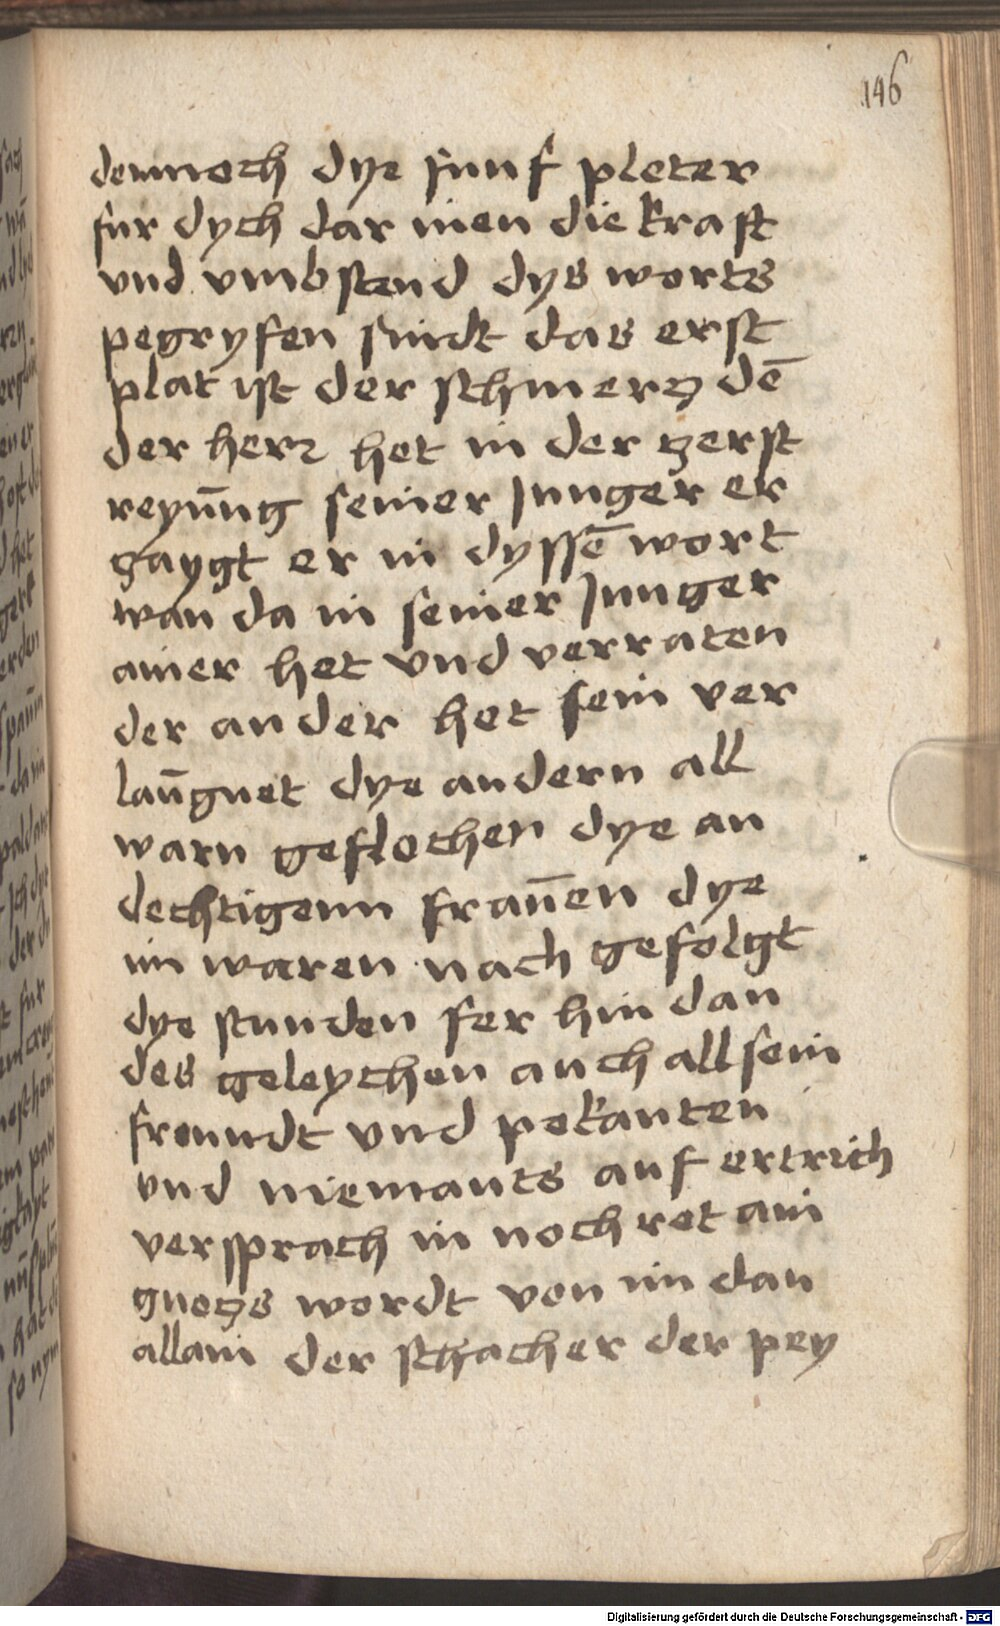 146
dennoch dye funf pleter
fur dych dar inen die kraft
vnd vmbstend dys worts
pegryfen sindt das erst
plat ist der schmerz dē
der herr het in der zerst
reyūng seiner Junger er
zaygt er in dyssē wort
wan da in seiner Junger
ainer het vnd verraten
der ander het sein ver
laūgnet dye andern all
warn geflochen dye an
dechtigenn fraūen dye
im waren nach gefolgt
dye stunden fer hin dan
des geleychen auch all sein
freundt vnd pekanten
vnd niemants auf ertrich
versprach in noch ret ain
guotzs wordt von im dan
allain der schacher der pey
Digitalisierung gefördert durch die Deutsche Forschungsgemeinschaft - DFG